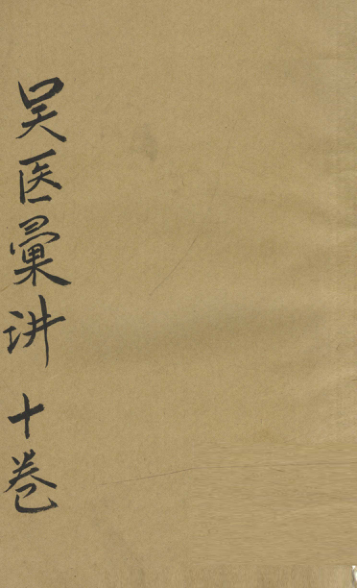 吴医彚讲 十卷